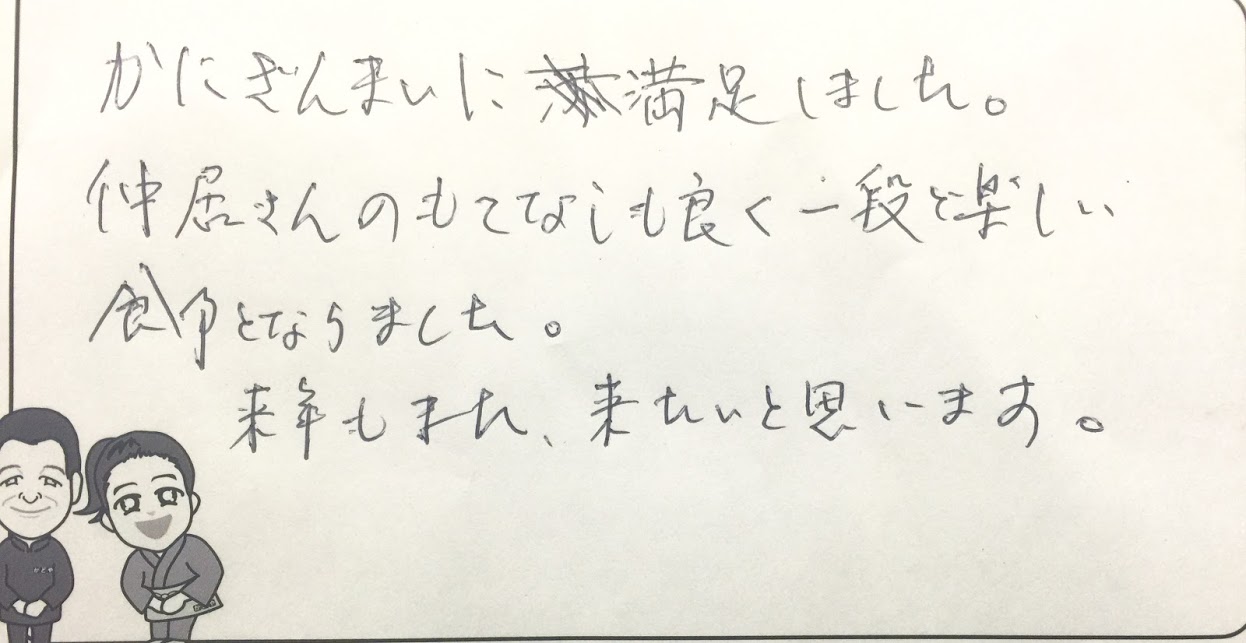 かにざんまいに満足しました。
仲居さんのもてなしも良く一段と楽しい
食事となりました。
来年もまた、来たいと思います。